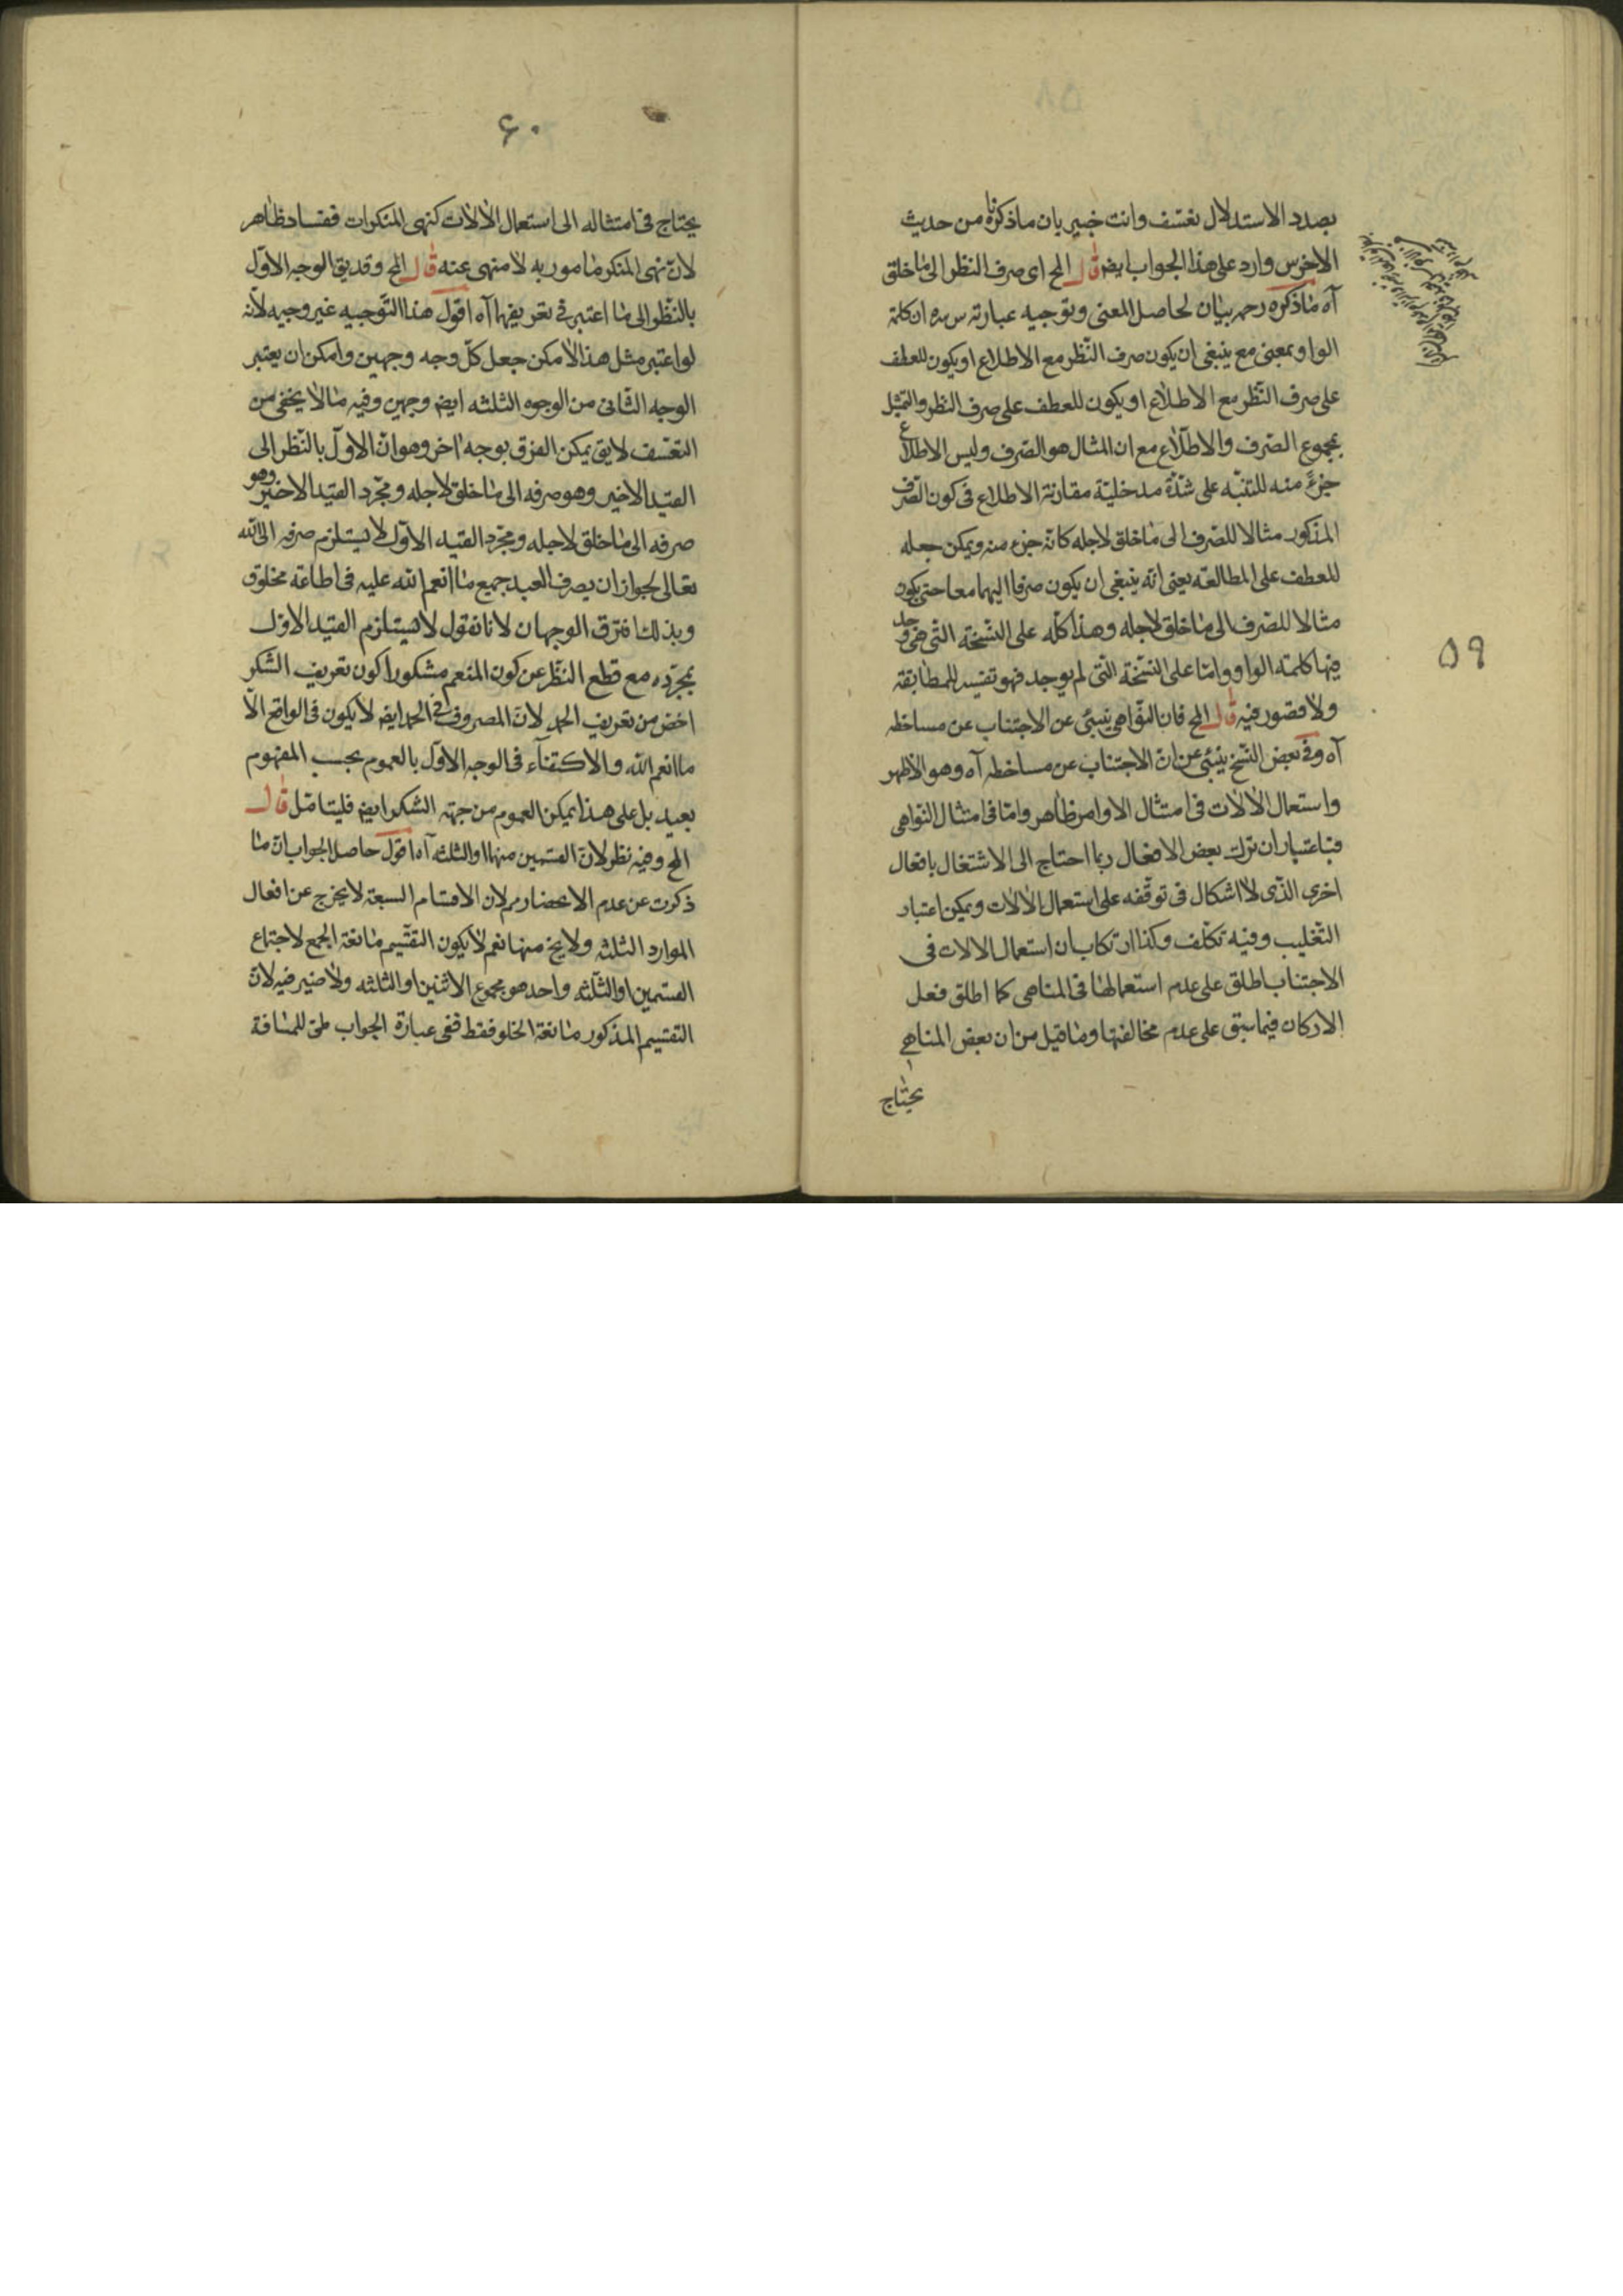 بصدد الاستدلال تعسف وانت خبير بان ماذكرناه من حديث
الاخرس وارد على هذا الجواب ايضا قال المح اى صرف النظر الى ما خلق
آه ماذكره رحمه بيان لحاصل المعنى وتوجيه عبارته س سره ان كلمة
الواو بمعنى مع ينبغى ان يكون صرف النّظر مع الاطلاع او يكون للعطف
على صرف النّظر مع الاطلاع او يكون للعطف على صرف النظر والتمثيل
بمجموع الصّرف والاطّلاع مع ان المثال هو الصّرف وليس الاطلاع
جزءً منه للتنبّه على شدّة مدخليّة مقارنة الاطلاع فى كون الصّرف
المذكور مثالا للصّرف الى ما خلق لاجله كانّه جزء منه ويمكن جعله
للعطف على المطالعة يعنى انه ينبغى ان يكون صرفا اليهما معا حتى يكون
مثالا للصّرف الى ما خلق لاجله وهذا كلّه على النّسخة التى هى وجد
فيها كلمة الواو وامّا على النّسخة التى لم يوجد فهو تفسير للمطابقة
ولا قصور فيه قال المح فان النّواهى ينبئى عن الاجتناب عن مساخطه
آه وفى بعض النّسخ ينبئى عن انّ الاجتناب عن مساخطه آه وهو الاظهر
واستعمال الالات فى امتثال الاوامر ظاهر وامّا فى امتثال النّواهى
فباعتبار ان ترك بعض الافعال ربما احتاج الى الاشتغال بافعال
اخرى الذى لا اشكال فى توقّفه على استعمال الالات ويمكن اعتبار
التّغليب وفيه تكلّف وكذا ارتكاب ان استعمال الالات فى
الاجتناب اطلق على عدم استعمالها فى المناهى كما اطلق فعل
الاركان فيما سبق على عدم مخالفتها وما قيل من ان بعض المناهى
يحتاج
٥٩
٦٠
يحتاج فى امتثاله الى استعمال الالات كنهى المنكرات ففساده ظاهر
لانّ نهى المنكر مامور به لا منهى عنه قال المح وقد يق الوجه الاوّل
بالنّظر الى ما اعتبر فى تعريفها آه اقول هذا التّوجيه غير وجيه لانّه
لو اعتبر مثل هذا لامكن جعل كلّ وجه وجهين وامكن ان يعتبر
الوجه الثّانى من الوجوه الثلثه ايضا وجهين وفيه ما لا يخفى من
التعسّف لا يق يمكن الفرق بوجه اخر وهو انّ الاوّل بالنّظر الى
القيد الاخير وهو صرفه الى ما خلق لاجله ومجّرد القيد الاخير وهو
صرفه الى ما خلق لاجله ومجّرد القيد الاوّل لا يستلزم صرفه الى الله
تعالى لجواز ان يصرف العبد جميع ما انعم الله عليه فى اطاعة مخلوق
وبذلك افترق الوجهان لانا نقول لا يستلزم القيد الاوّل
بمجرّده مع قطع النّظر عن كون المنعم مشكورا كون تعريف الشّكر
اخصّ من تعريف الحمد لانّ المصروف فى الحمد ايضا لا يكون فى الواقع الّا
ما انعم الله والاكتفاء فى الوجه الاوّل بالعموم بحسب المفهوم
بعيد بل على هذا يمكن العموم من جهة الشكر ايضا فليتامّل قال
المح وفيه نظر لانّ القسمين منها او الثلثه آه اقول حاصل الجواب انّ ما
ذكرت عن عدم الانحصار مم لان الاقسام السبعة لا يخرج عن افعال
الموارد الثلثه ولا يخ منها نعم لا يكون التقسيم مانعة الجمع لاجتماع
القسمين او الثّلثه واحد هو مجموع الاثنين او الثلثه ولا ضير فيه لانّ
التقسيم المذكور مانعة الخلو فقط ففى عبارة الجواب طىّ للمسافة